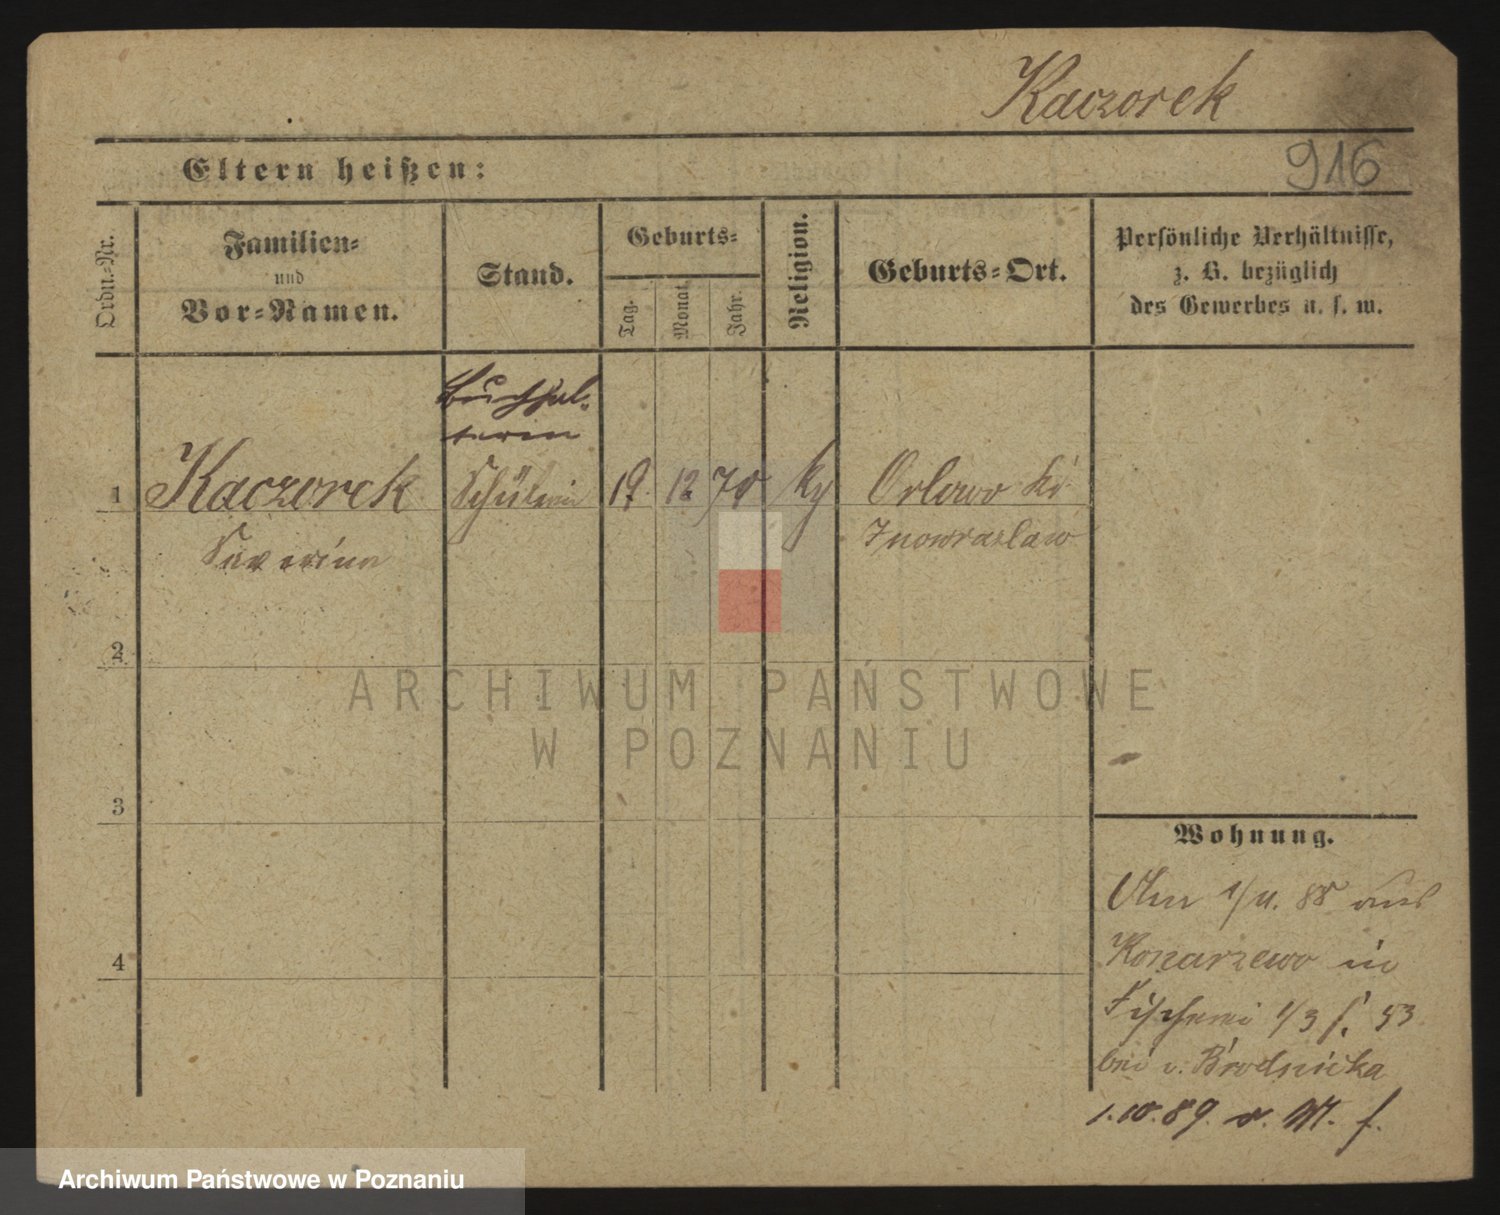 Kaczorek
916
Eltern heißen:
Ordn.-Nr.
Familien-
und
Vor-Namen.
Stand.
Geburts-
Tag.
Monat.
Jahr.
Religion.
Geburts-Ort.
Persönliche Verhältnisse,
z. B. bezüglich
des Gewerbes u. s. w.
Buchhal-
terin
1 Kaczorek Schülerin 19. 12 70 ky Orlowo Kr.
Severina Inowrazlaw
2
ARCHIWUM PAŃSTWOWE
W POZNANIU
3
Wohnung.
1/11. 88 aus
4 Konarzewo in
Fischerei 1/3 f. 53
bei v. Brodnicka
1.10.89. v. M. f.
Archiwum Państwowe w Poznaniu